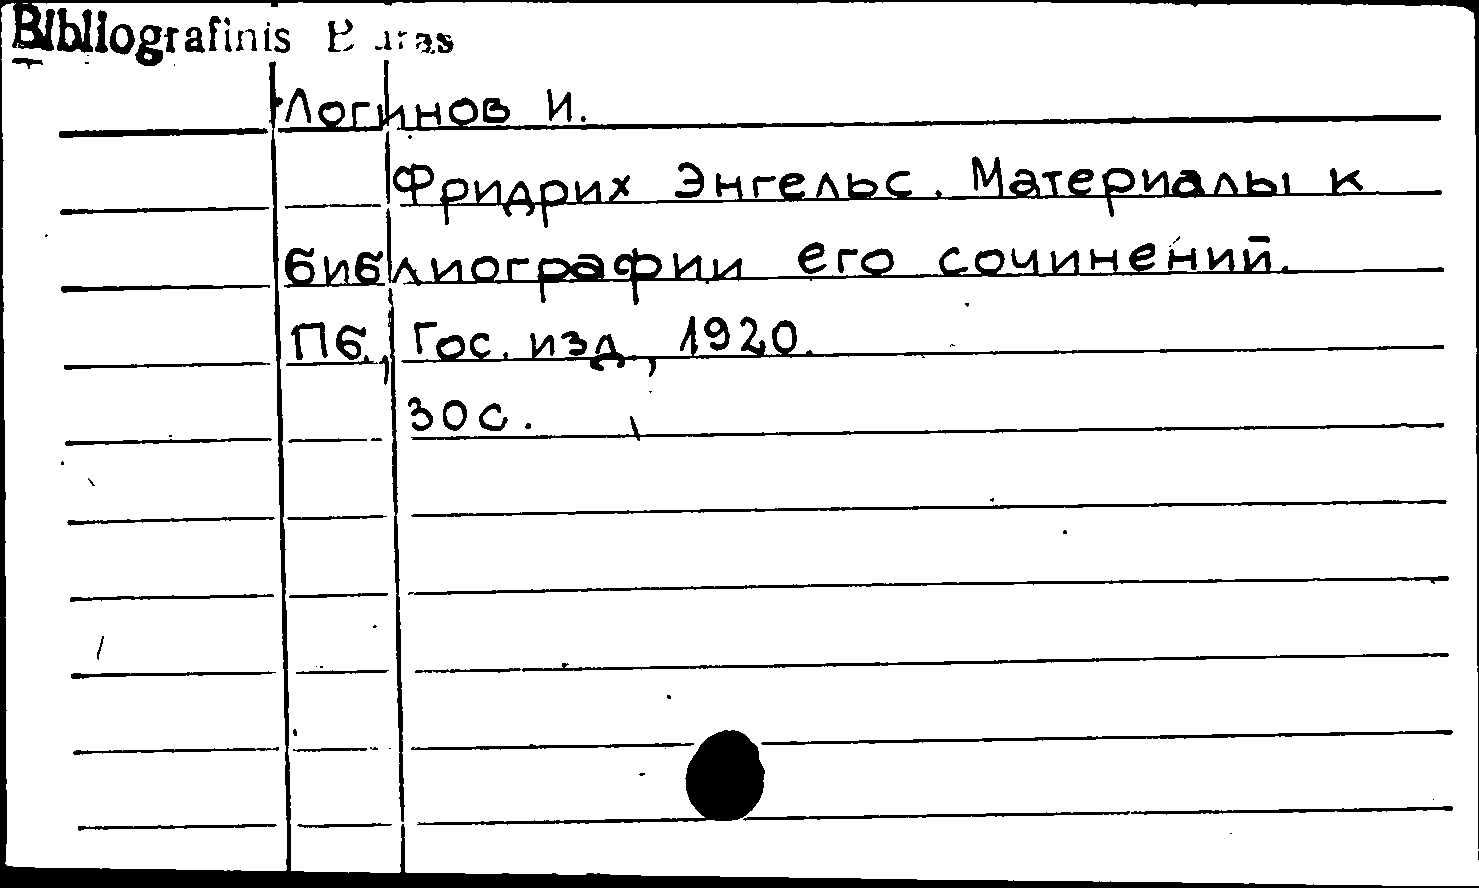 Bibliografinis
Логинов И.
Фридрих Энгельс. Материалы к
библиографии его сочинений.
Пб., Гос. изд., 1920.
30 с.